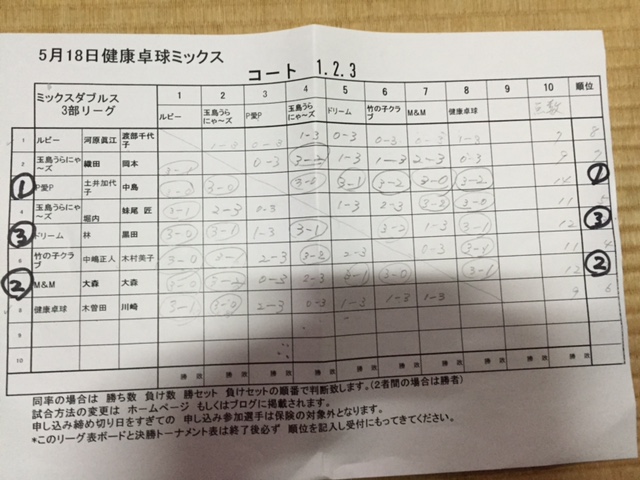 5月18日健康卓球ミックス
コート 1.2.3
ミックスダブルス 3部リーグ 1 2 3 4 5 6 7 8 9 10 順位
ルビー 玉島うらにゃ〜ズ P愛P 玉島うらにゃ〜ズ ドリーム 竹の子クラブ M&M 健康卓球
1 ルビー 河原眞江 渡部千代子 1-3 0-3 1-3 0-3 8
2 玉島うらにゃ〜ズ 織田 岡本 0-3 3-2 1-3 1-3 2-3 0-3 9
① P愛P 土井加代子 中島 3-0 3-1 3-2 3-0 3-2 ①
4 玉島うらにゃ〜ズ 堀内 妹尾 匠 3-1 2-3 0-3 1-3 2-3 3-0 3-0 11
③ ドリーム 林 黒田 3-0 3-1 1-3 3-1 3-2 1-3 3-1 12 ③
6 竹の子クラブ 中嶋正人 木村美子 3-0 3-1 2-3 3-2 2-3 0-3 11 4
② M&M 大森 大森 3-0 2-3 3-1 3-0 3-1 12 ②
8 健康卓球 木曽田 川崎 3-1 3-0 2-3 0-3 1-3 1-3 1-3 9 6
9
10
勝 敗 勝 敗 勝 敗 勝 敗 勝 敗 勝 敗 勝 敗 勝 敗 勝 敗 勝 敗
同率の場合は 勝ち数 負け数 勝セット 負けセットの順番で判断致します。(2者間の場合は勝者)
試合方法の変更は ホームページ もしくはブログに掲載されます。
申し込み締め切り日をすぎての 申し込み参加選手は保険の対象外となります。
*このリーグ表ボードと決勝トーナメント表は終了後必ず 順位を記入し受付にもってきてください。